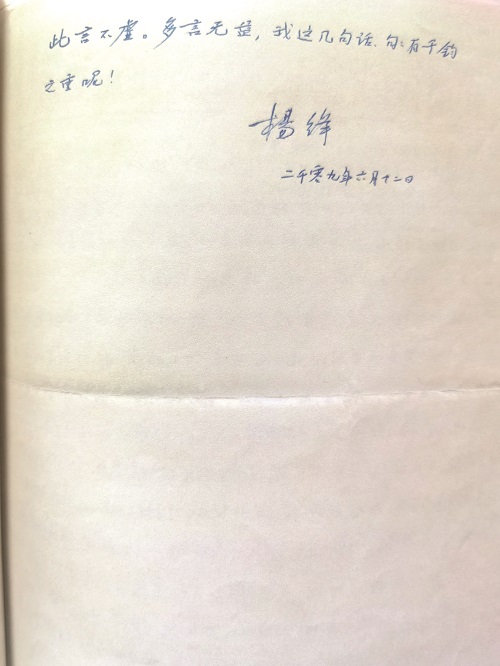 此言不虚。多言无益，我这几句话、句句有千钧
之重呢！
楊绛
二千零九年六月十二日